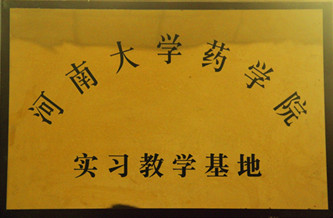 河南大学药学院
实习教学基地